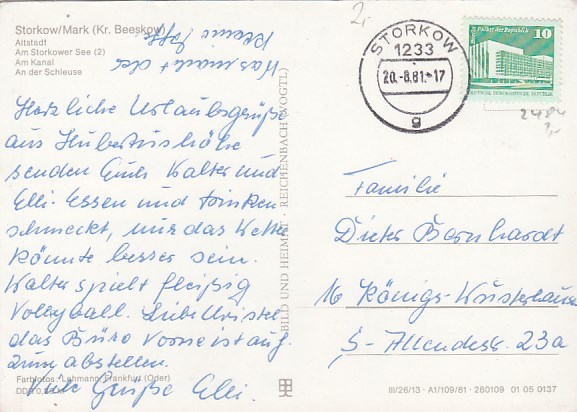 Storkow/Mark (Kr. Beeskow)
Altstadt
Am Storkower See (2)
Am Kanal
An der Schleuse
Was macht der
kleine
Herzliche Urlaubsgrüße
aus Hubertushöhe
senden Euch Walter und
Elli. Essen und trinken
schmeckt, nur das Wetter
könnte besser sein.
Walter spielt fleißig
Volleyball. Liebe
das Büro ist auf
zum abstellen.
Viele Grüße Elli.
Farbfotos: Lehmann, Frankfurt (Oder)
BILD UND HEIMAT · REICHENBACH (VOGTL)
2,-
STORKOW
1233
20.-8.81.-17
g
Berlin Palast der Republik
10
DEUTSCHE DEMOKRATISCHE REPUBLIK
2484
Familie
Dieter Bernhardt
16 Königs-Wusterhausen
S-Allendestr. 23a
III/26/13 · A1/109/81 · 280109 01 05 0137